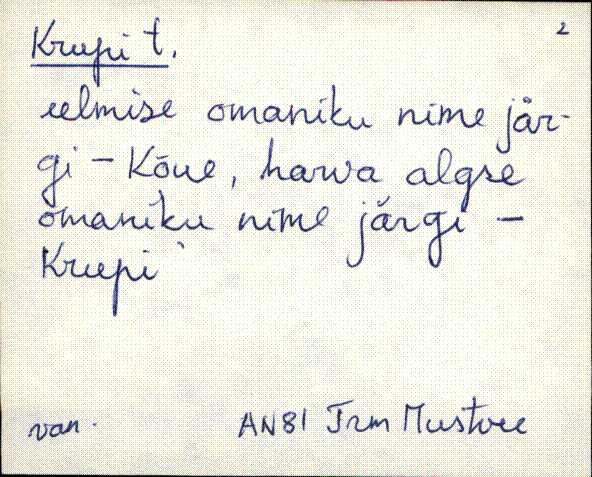 2
Krupi t.
eelmise omaniku nime jär-
gi - Kõue, harva algse
omaniku nime järgi -
Krupi
van. AN81 Trm Mustvee